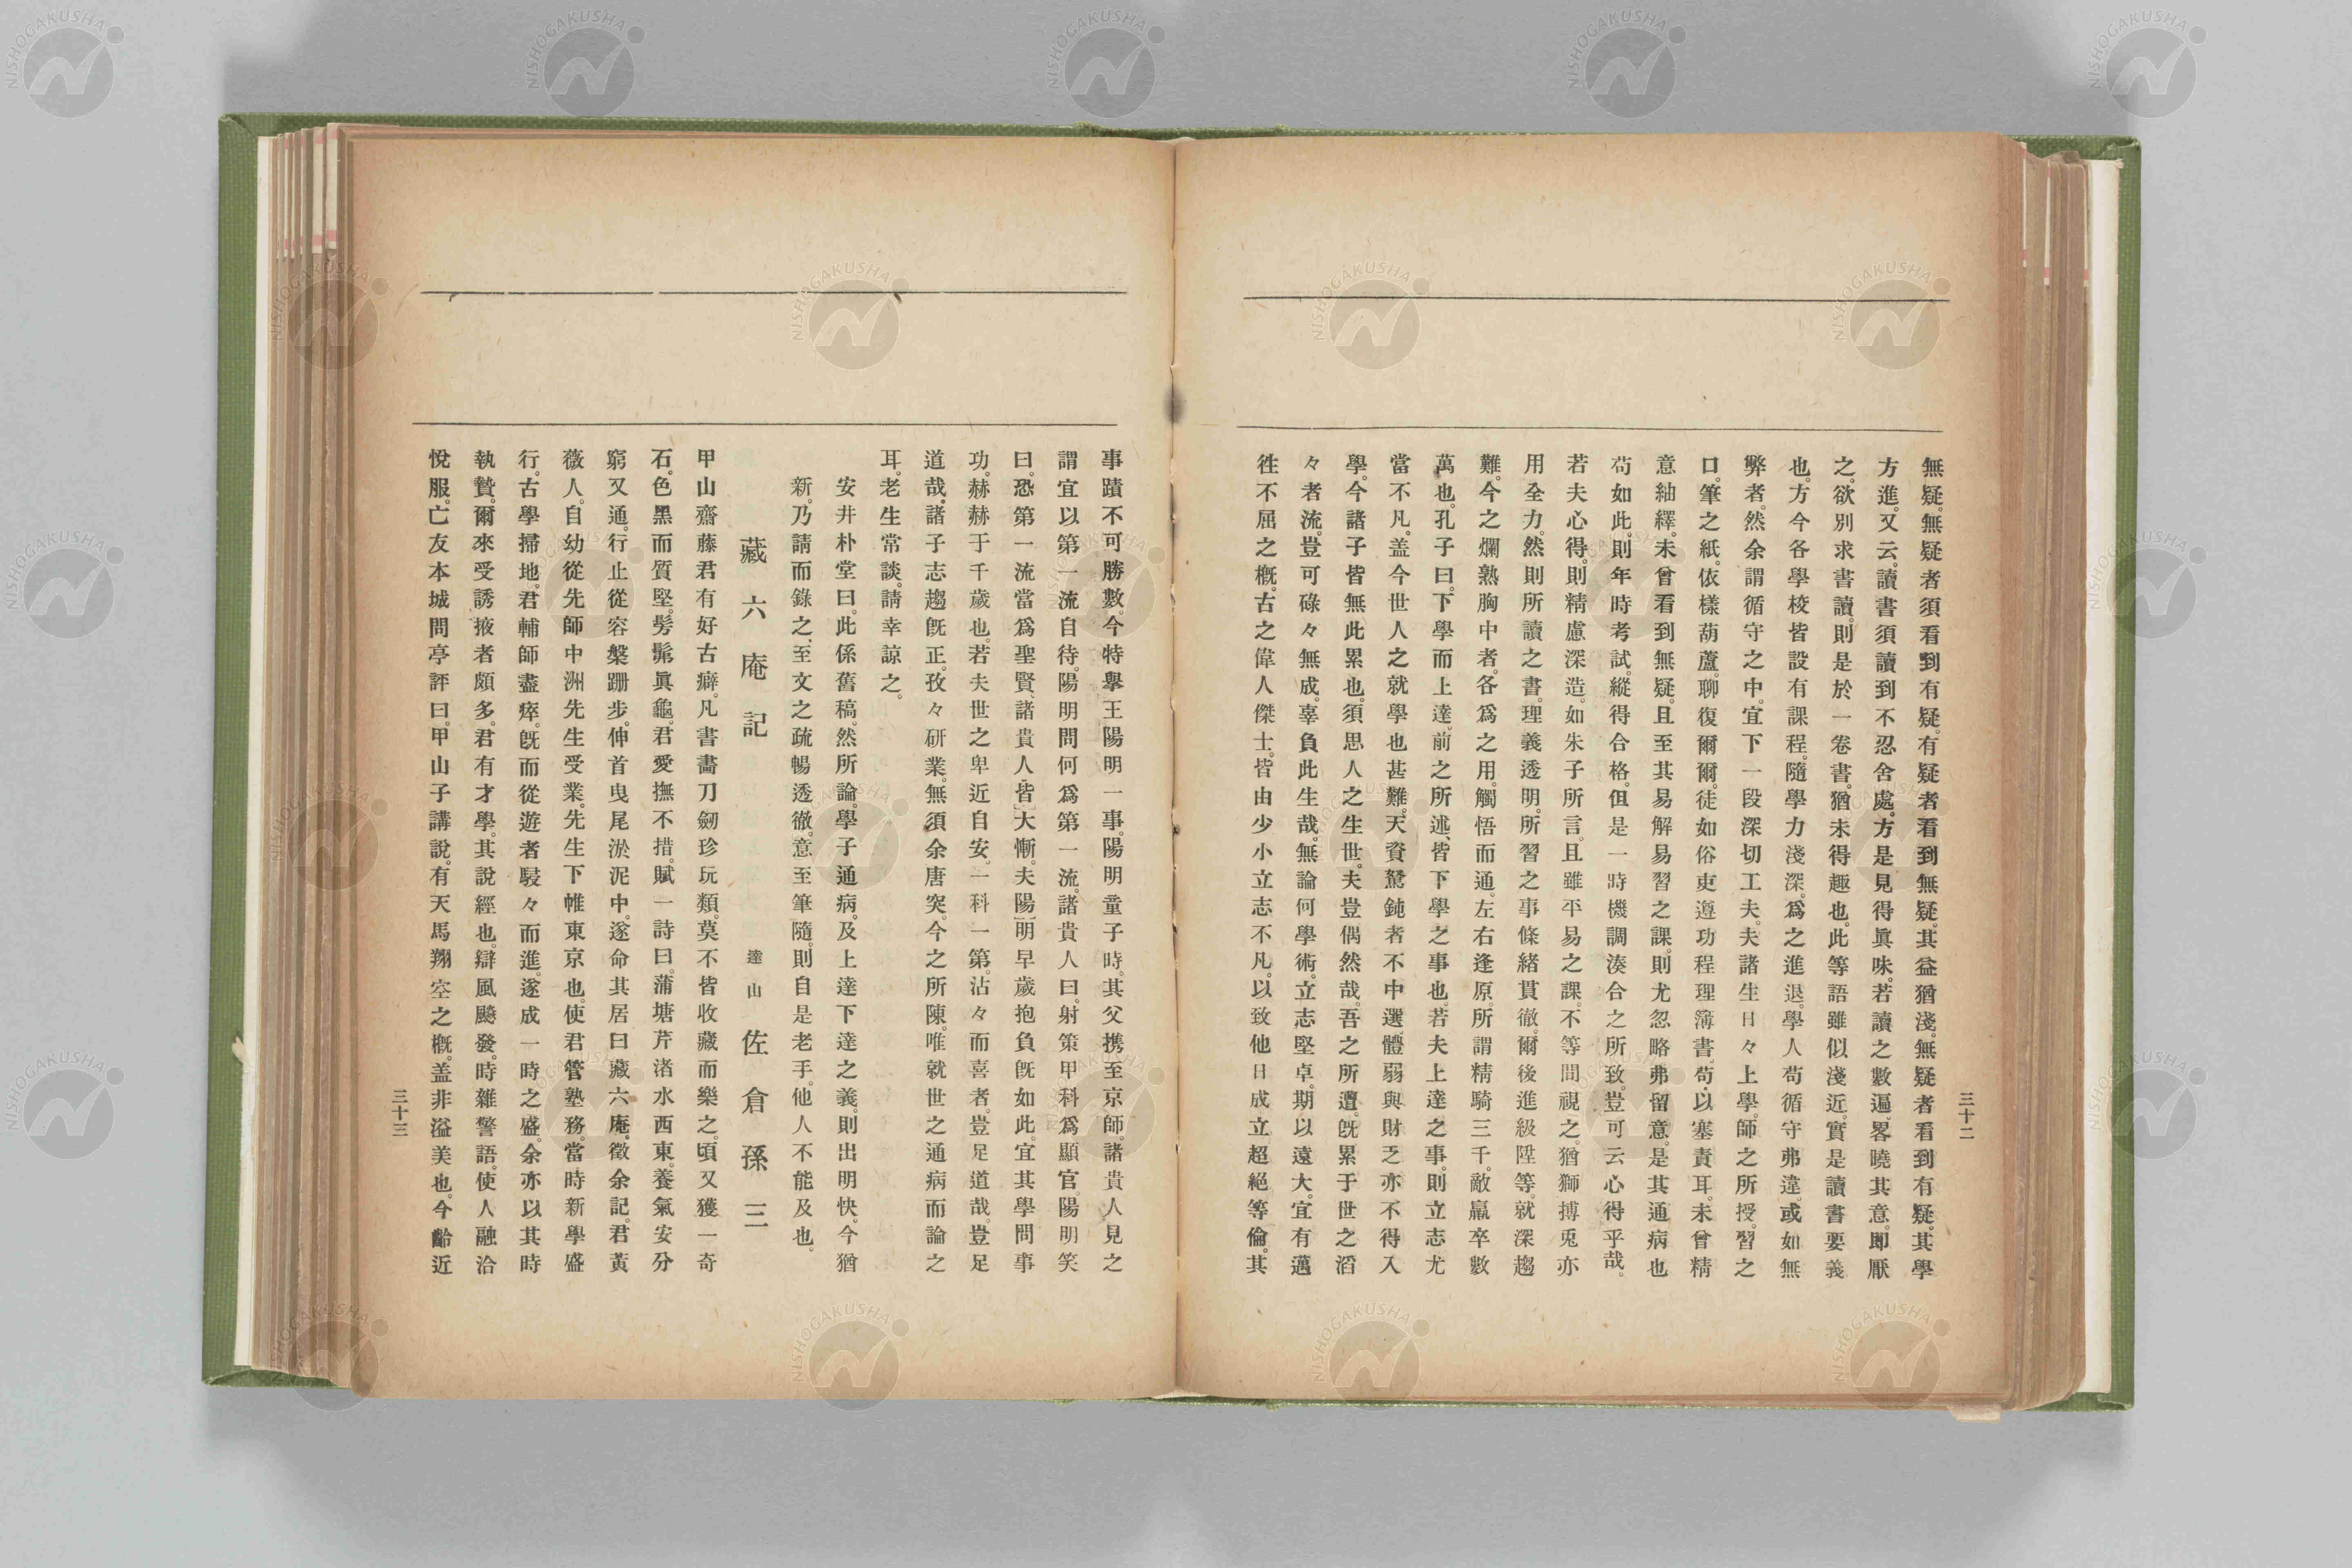 無疑。無疑者須看到有疑。有疑者看到無疑。其益猶淺。無疑者看到有疑。其學
方進。又云。讀書須讀到不忍舍處。方是見得眞味。若讀之數遍。畧曉其意。即厭
之。欲別求書讀。則是於一卷書。猶未得趣也。此等語雖似淺近。實是讀書要義
也。方今各學校皆設有課程。隨學力淺深。爲之進退。學人苟循守弗違。或如無
弊者。然余謂循守之中。宜下一段深切工夫。夫諸生日々上學。師之所授。習之
口。筆之紙。依樣葫蘆。聊復爾爾。徒如俗吏遵功程理簿書。苟以塞責耳。未曾精
意紬繹。未曾看到無疑。且至其易解易習之課。則尤忽略弗留意。是其通病也
苟如此。則年時考試。縱得合格。但是一時機調湊合之所致。豈可云心得乎哉。
若夫心得。則精慮深造。如朱子所言。且雖平易之課。不等閒視之。猶獅搏兎亦
用全力。然則所讀之書。理義透明。所習之事條緒貫徹。爾後進級陞等。就深趨
難。今之爛熟胸中者。各爲之用。觸悟而通。左右逢原。所謂精騎三千。敵羸卒數
萬也。孔子曰。下學而上達。前之所述。皆下學之事也。若夫上達之事。則立志尤
當不凡。盖今世人之就學也甚難。天資駑鈍者不中選。體弱與財乏亦不得入
學。今諸子皆無此累也。須思人之生世。夫豈偶然哉。吾之所遭。旣累于世之滔
々者流。豈可碌々無成。辜負此生哉。無論何學術。立志堅卓。期以遠大。宜有邁
徃不屈之槪。古之偉人傑士。皆由少小立志不凡。以致他日成立超絕等倫。其
三十二
事蹟不可勝數。今特擧王陽明一事。陽明童子時。其父携至京師。諸貴人見之
謂宜以第一流自待。陽明問何爲第一流。諸貴人曰。射策甲科爲顯官。陽明笑
曰。恐第一流當爲聖賢。諸貴人皆大慚。夫陽明早歲抱負旣如此。宜其學問事
功。赫赫于千歲也。若夫世之卑近自安。一科一第。沾々而喜者。豈足道哉。豈足
道哉。諸子志趨旣正。孜々研業。無須余唐突。今之所陳。唯就世之通病而論之
耳。老生常談。請幸諒之。
安井朴堂曰。此係舊稿。然所論。學子通病。及上達下達之義。則出明快。今猶
新。乃請而錄之。至文之疏暢透徹。意至筆隨。則自是老手。他人不能及也。
藏六庵記　達山　佐倉孫三
甲山齋藤君有好古癖。凡書畵刀劒珍玩類。莫不皆收藏而樂之。頃又獲一奇
石。色黑而質堅。髣髴眞龜。君愛撫不措。賦一詩曰。蒲塘芹渚水西東。養氣安分
窮又通。行止從容槃跚步。伸首曳尾淤泥中。遂命其居曰藏六庵。徵余記。君黃
薇人。自幼從先師中洲先生受業。先生下帷東京也。使君管塾務。當時新學盛
行。古學掃地。君輔師盡瘁。旣而從遊者駸々而進。遂成一時之盛。余亦以其時
執贄。爾來受誘掖者頗多。君有才學。其說經也。辯風颷發。時雜警語。使人融洽
悅服。亡友本城問亭評曰。甲山子講說。有天馬翔空之槪。盖非溢美也。今齡近
三十三